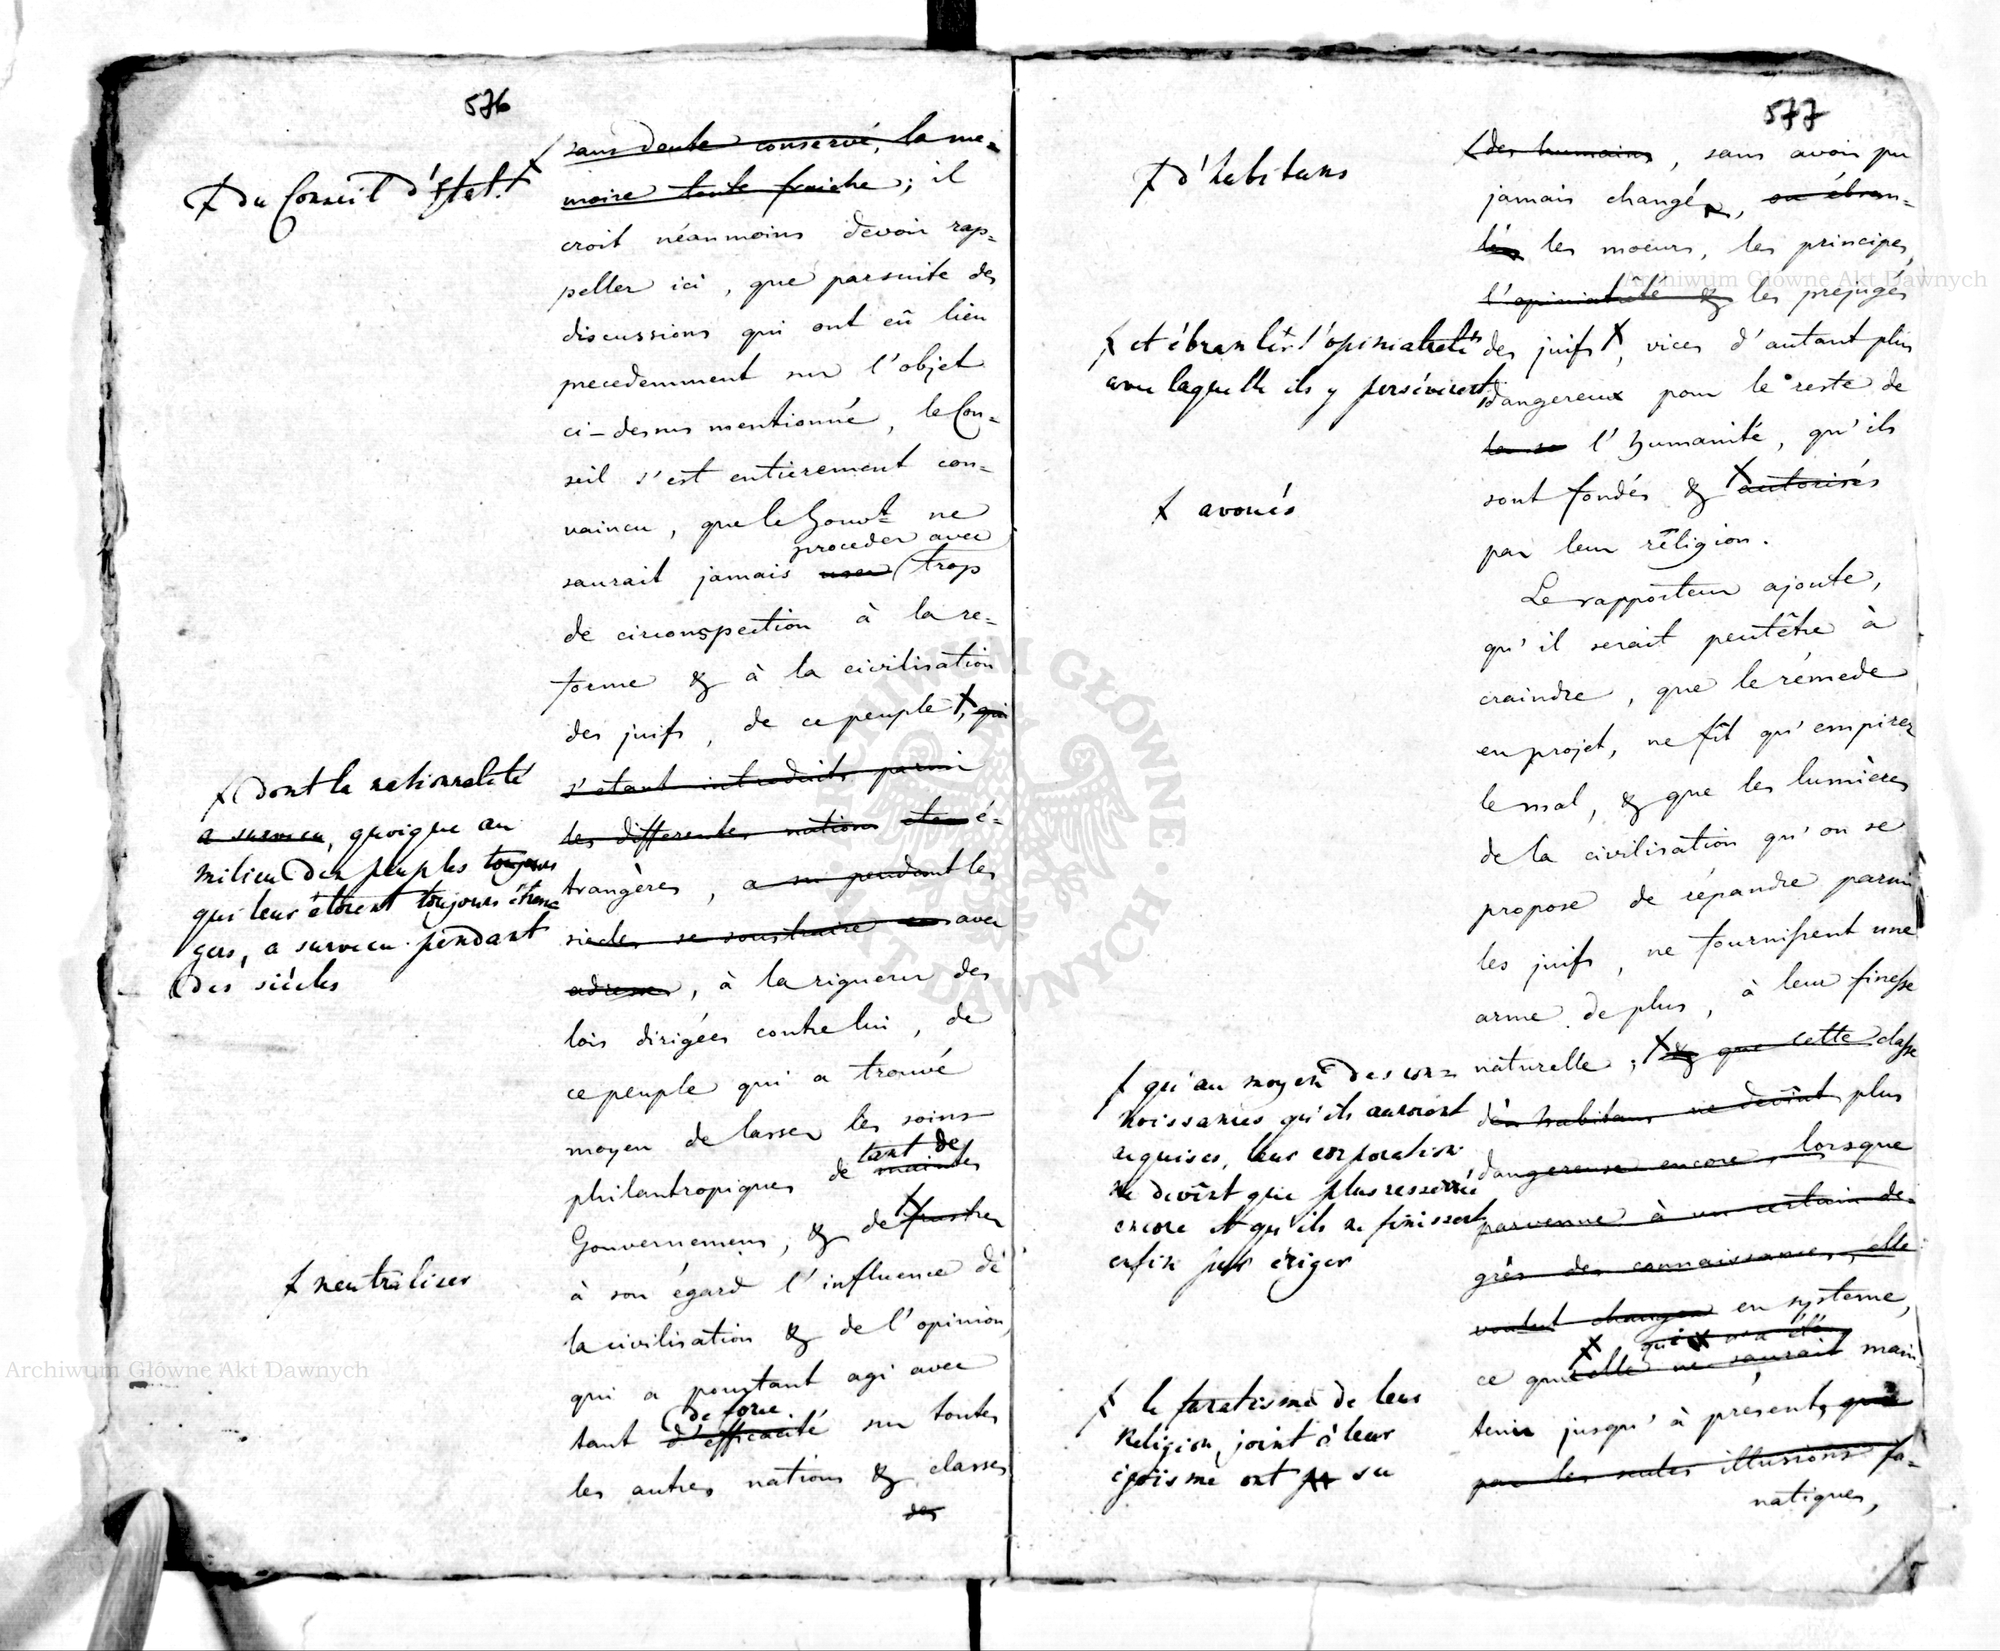 576
ƚ Du Conseil d'Etat.
sans doute conservé, la me-
moire toute fraiche; il
croit néanmoins devoir rap-
peller ici, que par suite des
discussions qui ont eû lieu
precedemment sur l'objet
ci-dessus mentionné, le Con-
seil s'est entierement con-
vaincu, que le Gouvt. ne
proceder avec
saurait jamais user trop
de circonspection à la re-
forme & à la civilisation
des juifs, de ce peuple, qui
s'etant introduits parmi
les differentes nations é-
trangères, a su pendant les
siècles se soustraire avec
adresse, à la rigueur des
lois dirigées contre lui, de
ce peuple qui a trouvé
moyen de lasser les soins
tant de
philantropiques de maints
Gouvernemens, & de frustrer
à son égard l'influence de
la civilisation & de l'opinion,
qui a pourtant agi avec
de force
tant d'efficacité sur toutes
les autres nations & classes
des
ƚ Dont la nationnalité
a survecu, quoique au
milieu des peuples toujours
qui leur étoient toujours étran-
gers, a survecu pendant
des siècles
ƚ neutraliser
577
des humains, sans avoir pu
jamais changé, ou ébran-
lés les moeurs, les principes,
l'opiniatreté & les prejugés
des juifs, vices d'autant plus
dangereux pour le reste de
l'humanité, qu'ils
sont fondés & autorisés
par leur réligion.
Le rapporteur ajoute,
qu'il serait peutêtre à
craindre, que le rémede
en projet, ne fît qu'empirer
le mal, & que les lumières
de la civilisation qu'on se
propose de répandre parmi
les juifs, ne fournissent une
arme de plus, à leur finesse
naturelle; & que cette classe
d'habitans ne devînt plus
dangereuse encore, lorsque
parvenue à un certain de-
grés des connaissances, elle
voulut changer en systeme,
qui n'a été
ce qu'elle ne saurait main-
tenir jusqu'à présent, que
par les seules illusions fa-
natiques,
ƚ d'habitans
ƚ et ébranler l'opiniatreté
avec laquelle ils y persévèrent,
ƚ avoués
ƚ qu'au moyen des con-
noissances qu'ils auroient
acquises, leur corporation
ne devînt que plus resserrée
encore et qu'ils ne finissent
enfin par ériger
ƚ le fanatisme de leur
Religion, joint à leur
égoisme ont su
Archiwum Główne Akt Dawnych
Archiwum Główne Akt Dawnych
ARCHIWUM GŁÓWNE AKT DAWNYCH